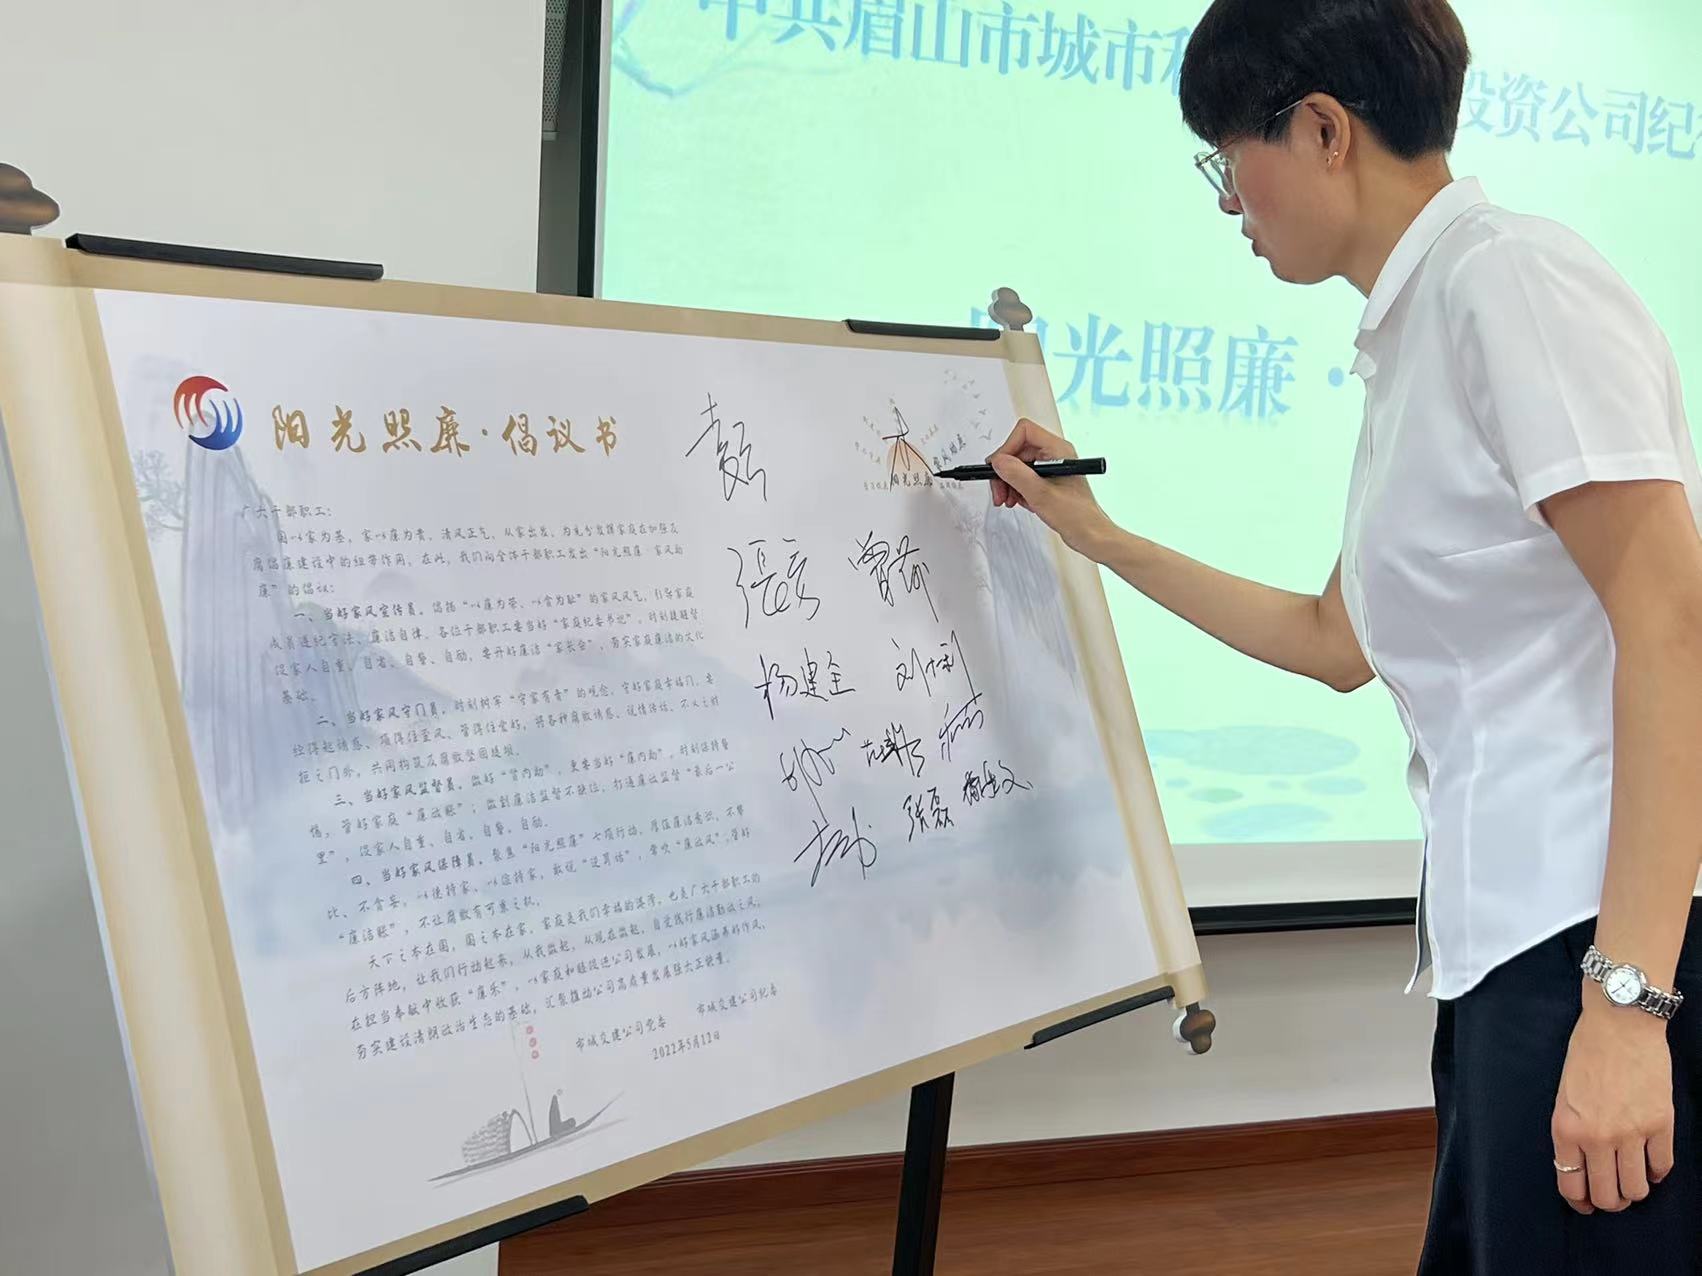 中共眉山市城市
投资公司纪
光照廉·
阳光照廉·倡议书
广大干部职工：
国以家为基，家以廉为贵，清风正气，从家出发，为充分发挥家庭在加强反
腐倡廉建设中的纽带作用，在此，我们向全体干部职工发出“阳光照廉·家风助
廉”的倡议：
一、当好家风宣传员。倡扬“以廉为荣、以贪为耻”的家风风气，引导家庭
成员遵纪守法、廉洁自律。各位干部职工要当好“家庭纪委书记”，时刻提醒督
促家人自重、自省、自警、自励，要开好廉洁“家长会”，夯实家庭廉洁的文化
基础。
二、当好家风守门员。时刻树牢“守家有责”的观念，守好家庭幸福门，要
经得起诱惑、顶得住歪风、管得住爱好，将各种腐败诱惑、说情送话、不义之财
拒之门外，共同构筑反腐败坚固堤坝。
三、当好家风监督员。做好“贤内助”，更要当好“廉内助”，时刻保持警
惕，管好家庭“廉政账”；做到廉洁监督不缺位，打通廉政监督“最后一公
里”，促家人自重、自省、自警、自励。
四、当好家风保障员。聚焦“阳光照廉”七项行动，厚植廉洁意识，不攀
比、不贪妄，以德持家、以俭持家，敢说“逆耳话”，常吹“廉政风”，管好
“廉洁账”，不让腐败有可乘之机。
天下之本在国，国之本在家，家庭是我们幸福的港湾，也是广大干部职工的
后方阵地，让我们行动起来，从我做起，从现在做起，自觉践行廉洁勤政之风，
在担当奉献中收获“廉乐”，以家庭和睦促进公司发展，以好家风涵养好作风，
夯实建设清朗政治生态的基础，汇聚推动公司高质量发展强大正能量。
市城交建公司党委 市城交建公司纪委
2022年5月12日
阳光照廉
杨建全
张磊